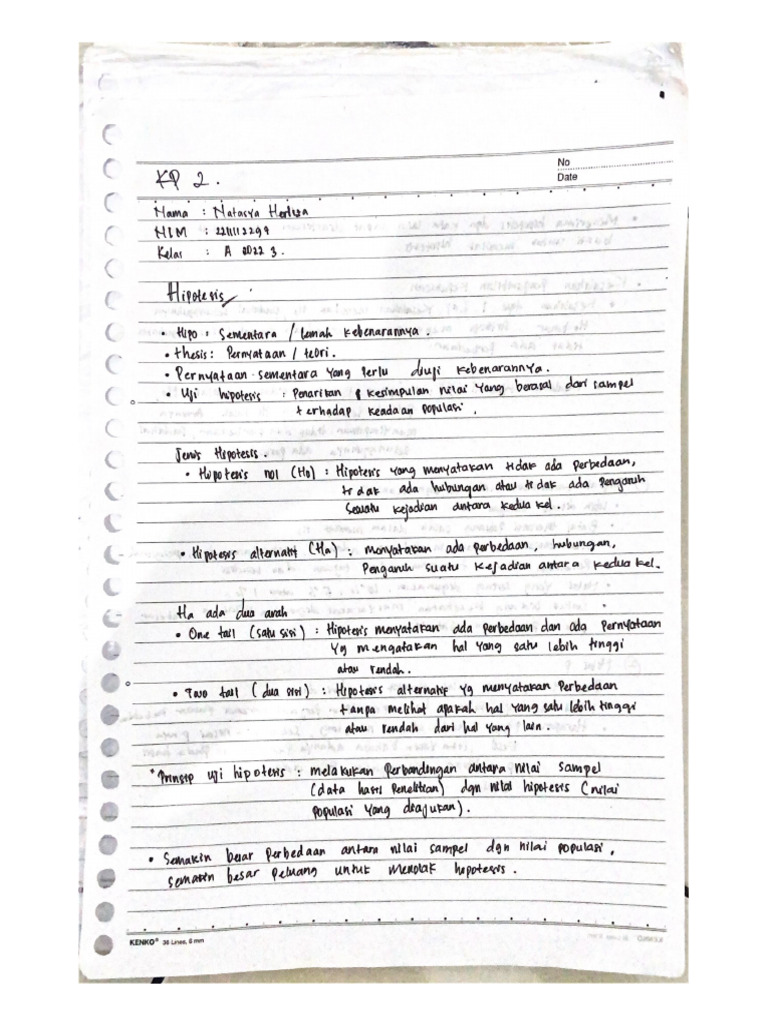 No
Date
KP 2.
Nama : Natasya Herlisa
NIM : 2211112294
Kelas : A 2022 3.
Hipotesis
• Hipo : Sementara / lemah kebenarannya.
• thesis : Pernyataan / teori.
• Pernyataan sementara yang perlu diuji kebenarannya.
• Uji hipotesis : Penarikan kesimpulan nilai yang berasal dari sampel
terhadap keadaan populasi.
Jenis Hipotesis.
• Hipotesis nol (Ho) : Hipotesis yang menyatakan tidak ada perbedaan,
tidak ada hubungan atau tidak ada pengaruh
suatu kejadian antara kedua kel.
• Hipotesis alternatif (Ha) : menyatakan ada perbedaan, hubungan,
Pengaruh suatu kejadian antara kedua kel.
Ha ada dua arah
• One tail (satu sisi) : Hipotesis menyatakan ada perbedaan dan ada pernyataan
yg mengatakan hal yang satu lebih tinggi
atau rendah.
• Two tail (dua sisi) : Hipotesis alternatif yg menyatakan Perbedaan
tanpa melihat apakah hal yang satu lebih tinggi
atau rendah dari hal yang lain.
• Prinsip uji hipotesis : melakukan Perbandingan antara nilai sampel
(data hasil Penelitian) dgn nilai hipotesis (nilai
populasi yang diajukan).
• Semakin besar perbedaan antara nilai sampel dgn nilai populasi,
semakin besar peluang untuk menolak hipotesis.
KENKO® 36 Lines, 8 mm